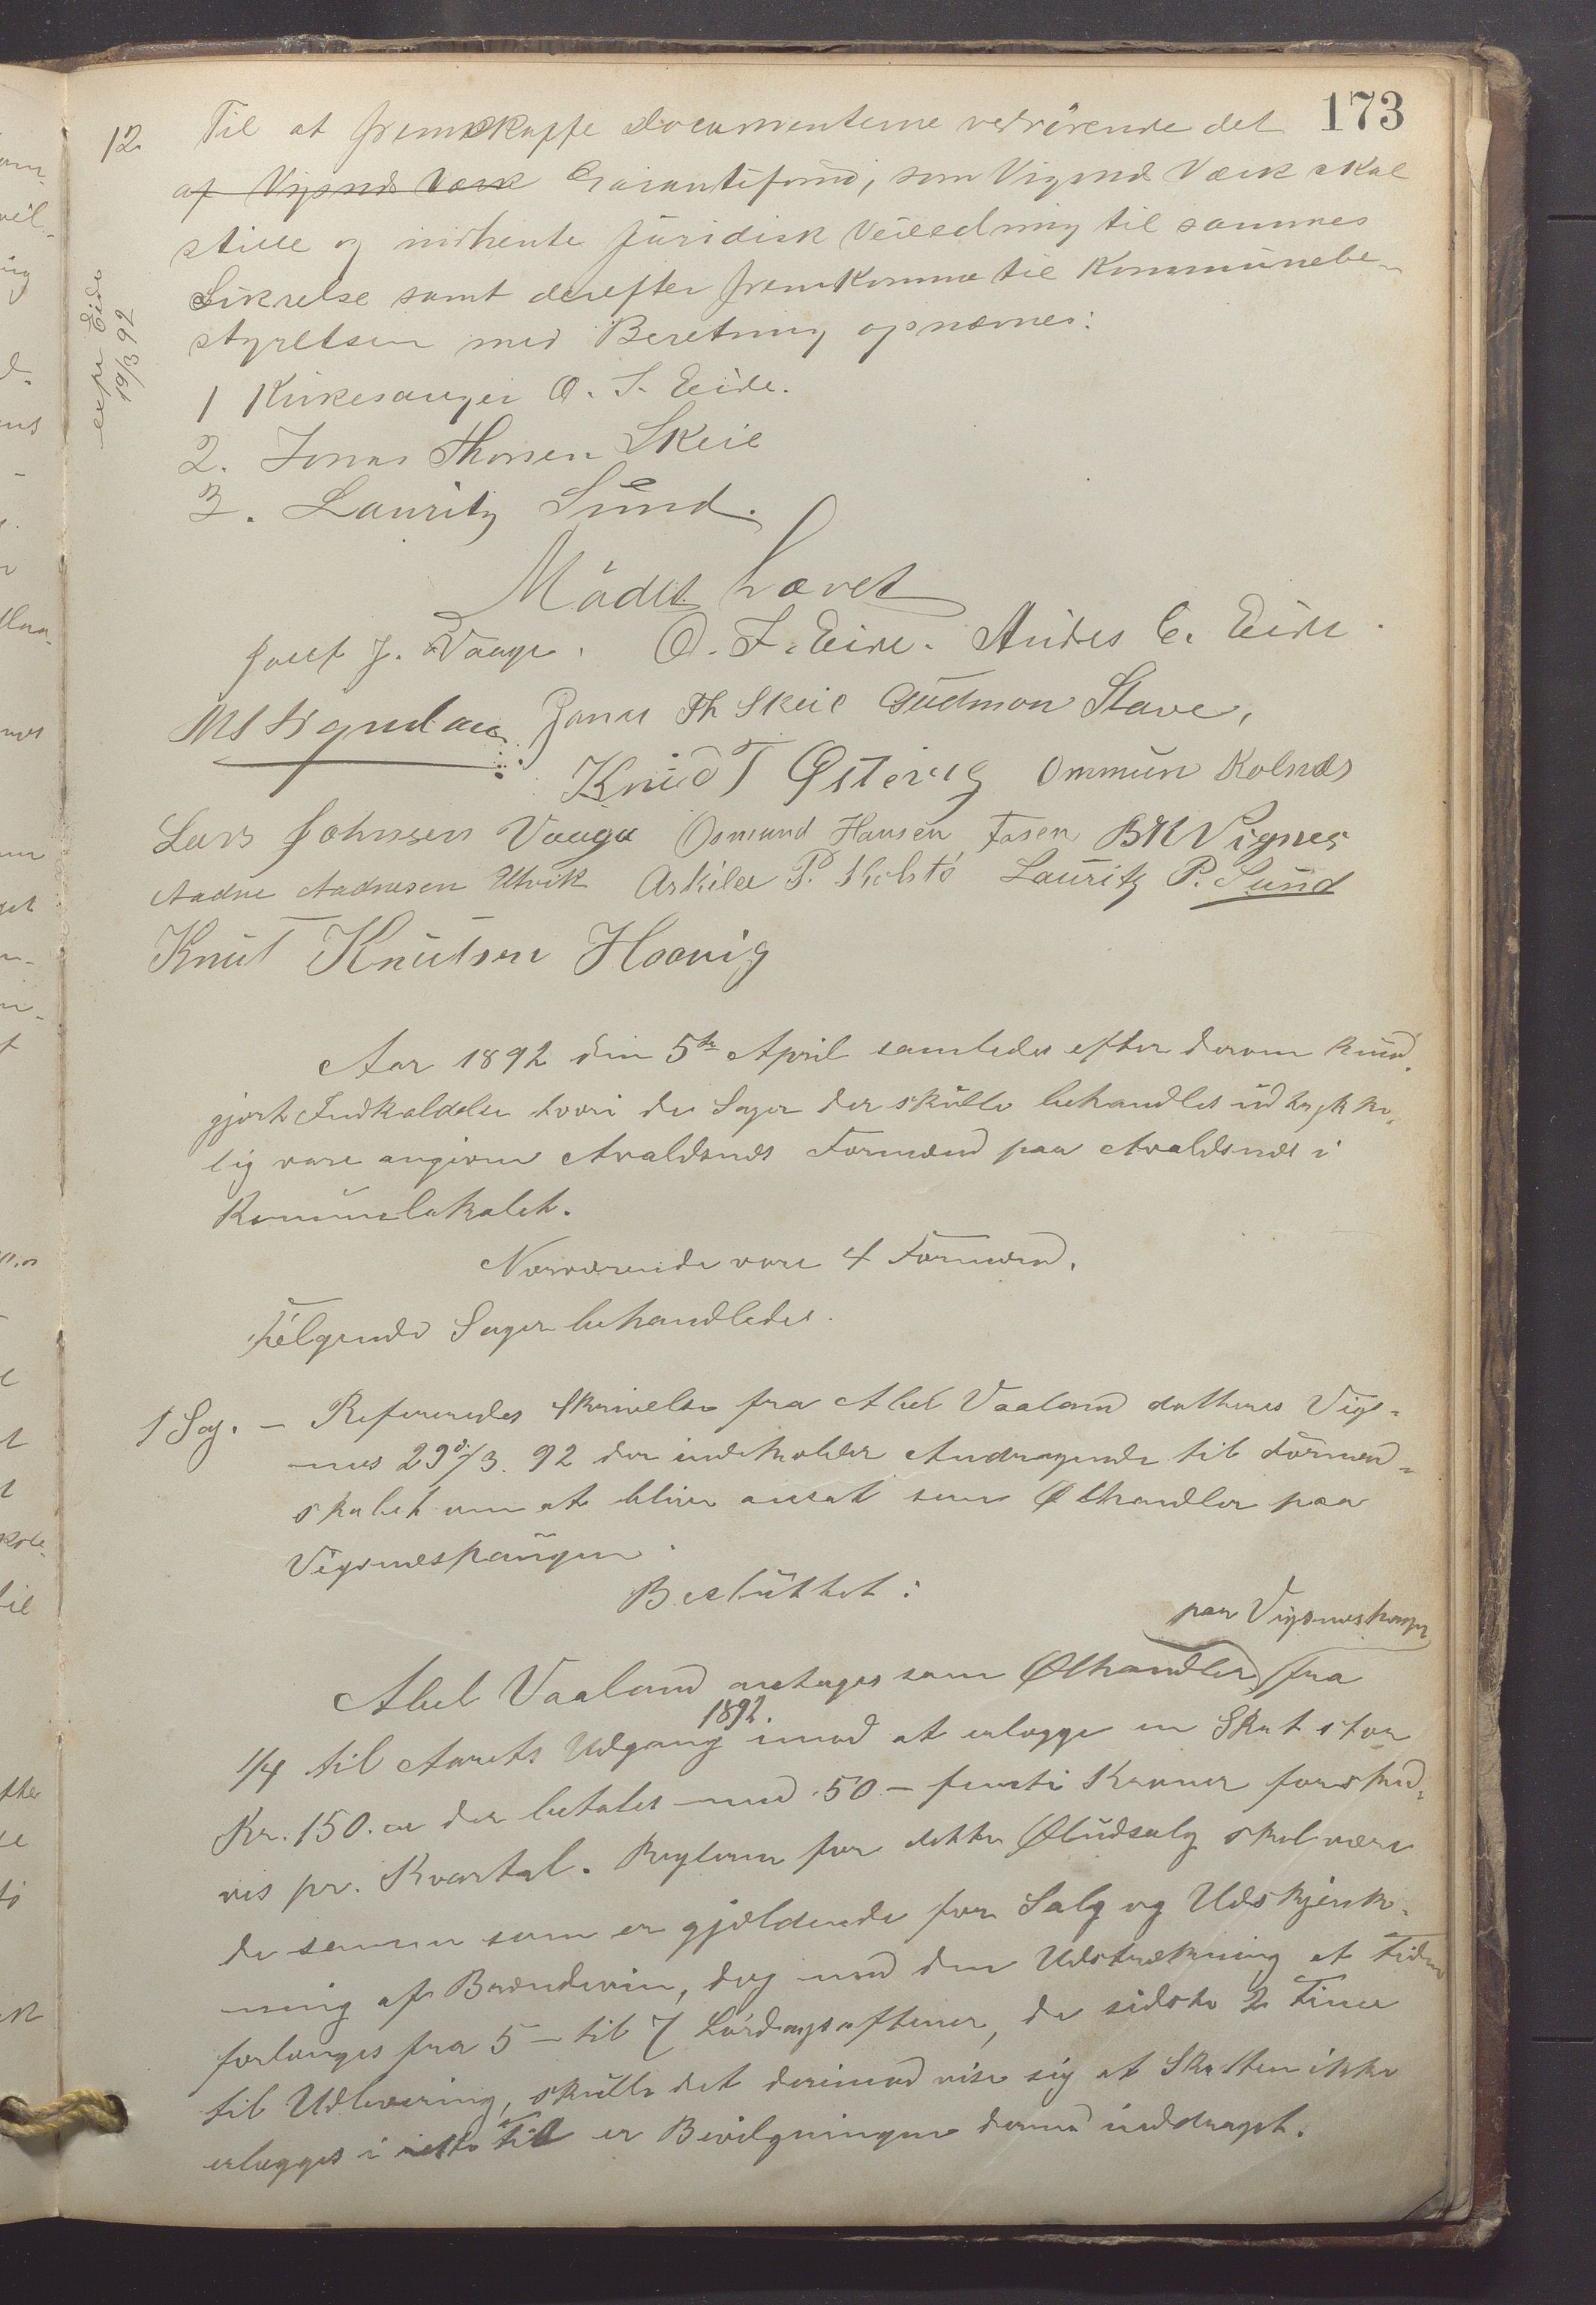 173
12. Til at fremskaffe Documenterne vedrörende det
af Vigsnæs Værk Garantifond, som Vigsnæs Værk skal
stille og indhente juridisk Veiledning til sammes
Sikrelse samt derefter fremkomme til Kommunebe-
styrelsen med Beretning opnævnes:
expr Eide
19/3 92
1 Kirkesanger O. F. Eide.
2. Jonas Thorsen Skeie
3. Lauritz Sund.
Mödet hævet
Josef J. Vaage. O. F. Eide. Andres C. Eide.
Jonas Th Skeie Gudmon Stave,
Knud T Østevig Ommun Kolnæs
Lars Johnsen Vaaga Osmund Hansen Fosen BK Vignes
Aadne Aadnesen Utvik Askild P. Kolstö Lauritz P. Sund
Knut Knutsen Haavig
Aar 1892 den 5te April samledes efter derom kund-
gjort Indkaldelse hvori de Sager der skulle behandles udtrykke-
lig vare angivne Avaldsnæs Formænd paa Avaldsnæs i
Kommunelokalet.
Nærværende vare 4 Formænd.
Fölgende Sager behandledes.
1 Sag. - Refereredes Skrivelse fra Abel Vaaland datheret Vigs-
næs 29de/3. 92 der indeholder Andragende til Formænd-
skabet om at blive ansat som Ølhandler paa
Vigsnæshaugen.
Besluttet:
paa Vigsnæshaugen
Abel Vaaland antages som Ølhandler fra
1/4 til Aarets Udgang 1892. imod at erlægge en Skat stor
Kr. 150.00 der betales med 50 - femti Kroner forskud-
vis pr. Kvartal. Reglerne for dette Øludsalg skal være
de samme som er gjældende for Salg og Udskjænk-
ning af Brændevin, dog med den Udstrækning at Tiden
forlænges fra 5 - til 7 Lördagsaftener, de sidste 2 Timer
til Udlevering, skulle det derimod vise sig at Skatten ikke
erlægges i rette Tid er Bevilgningen dermed inddraget.